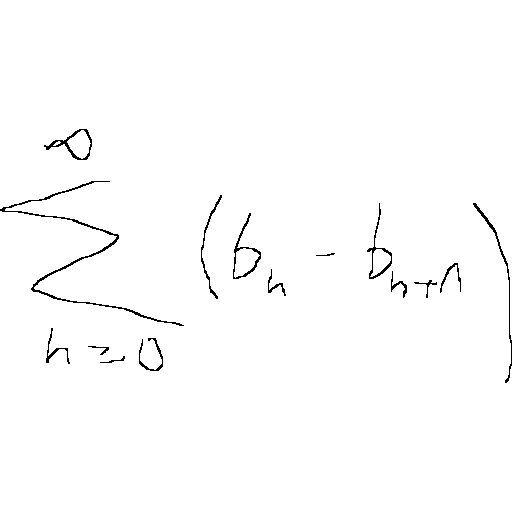 \sum_{n=0}^{\infty} (b_n - b_{n+1})